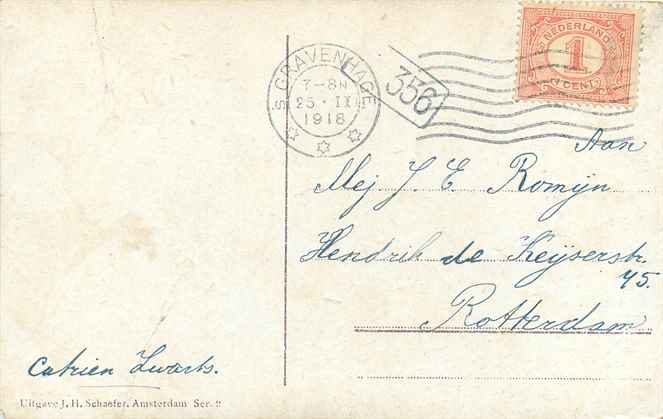 NEDERLAND
1
CENT
S GRAVENHAGE
7-8N
25·IX
1918
356
Aan
Mej. J. E. Romijn
Hendrik de Keyserstr.
45.
Rotterdam
Catrien Zwarts.
Uitgave J. H. Schaefer, Amsterdam Ser.